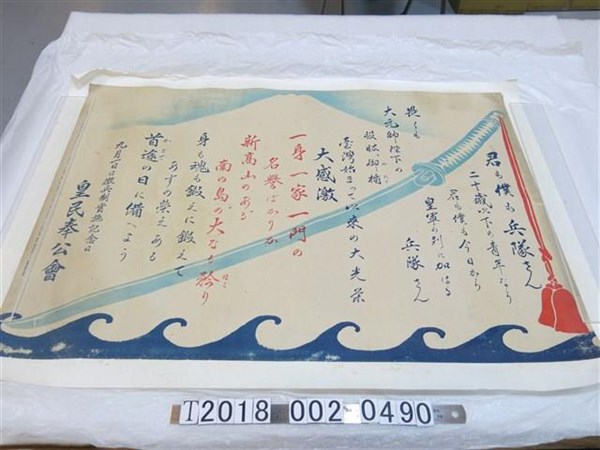 君も僕も兵隊さん
二十歳以下の青年なら
君も僕も今日から
皇軍の列に加はる
兵隊さん
畏くも
大元帥陛下の
股肱御楯
臺灣始まつて以来の大光栄
大感激
一身一家一門の
名誉ばかりか
新高山のある
南の島の大なる矜り
身も魂も鍛えに鍛えて
あすの栄えある
首途の日に備へよう
九月一日徴兵制実施記念日
皇民奉公會
T2018 002 0490